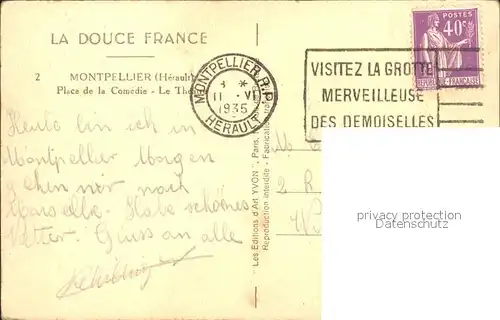 LA DOUCE FRANCE
2 MONTPELLIER (Hérault)
Place de la Comédie - Le Thé
MONTPELLIER R.P.
* 11 - VI
1935
HERAULT
VISITEZ LA GROTTE
MERVEILLEUSE
DES DEMOISELLES
POSTES
40c
FRANÇAISE
Heute bin ich in
Montpellier Morgen
gehen wir nach
Marseille. Habe schönes
Wetter. Gruss an alle
Les Editions d'Art YVON", Paris,
Reproduction interdite - Fabrication
M
2 R
privacy protection
Datenschutz